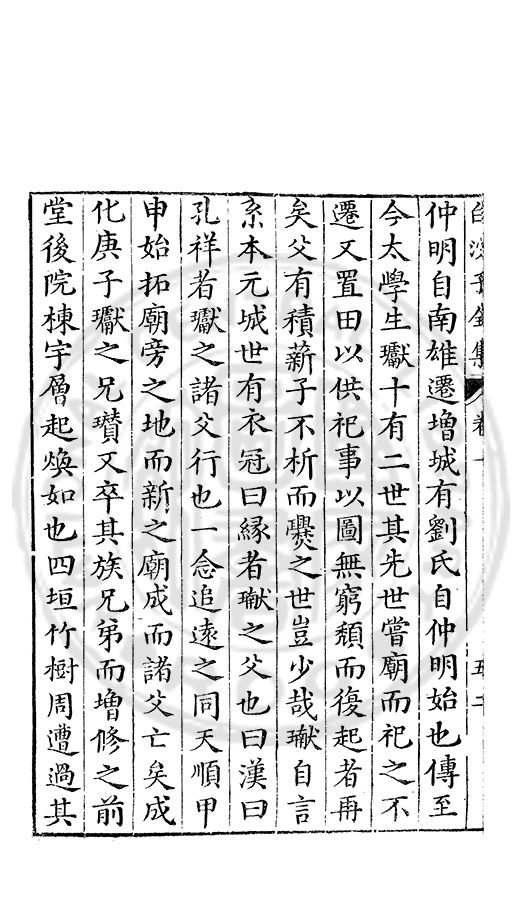 仲明自南雄遷增城有劉氏自仲明始也傳至
今太學生瓛十有二世其先世嘗廟而祀之不
遷又置田以供祀事以圖無窮頹而復起者再
矣父有積薪子不析而爨之世豈少哉瓛自言
系本元城世有衣冠曰緣者瓛之父也曰漢曰
孔祥者瓛之諸父行也一念追遠之同天順甲
申始拓廟旁之地而新之廟成而諸父亡矣成
化庚子瓛之兄瓚又卒其族兄弟而增修之前
堂後院棟宇層起煥如也四垣竹樹周遭過其